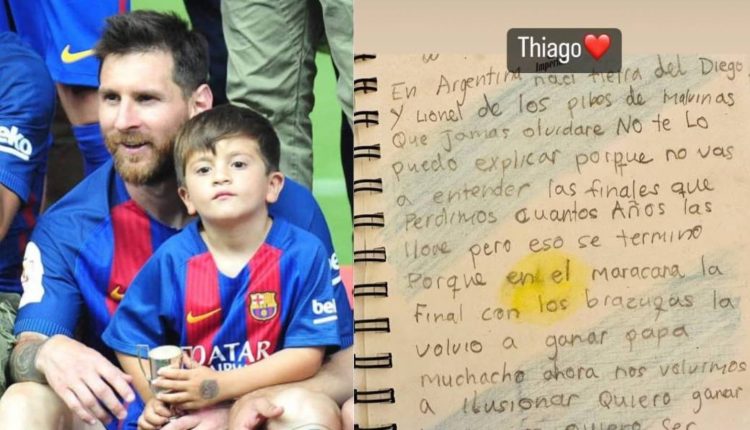 beko
QATAR
AIRWAYS
beko
Thiago❤️
En Argentina naci tierra del Diego
Y Lionel de los pibes de Malvinas
Que jamas olvidare No te Lo
puedo explicar porque no vas
a entender las finales que
Perdimos cuantos Años las
llore pero eso se termino
Porque en el maracana la
final con los brazugas la
volvio a ganar papa
muchacho ahora nos volvimos
a Ilusionar Quiero ganar
quiero ser